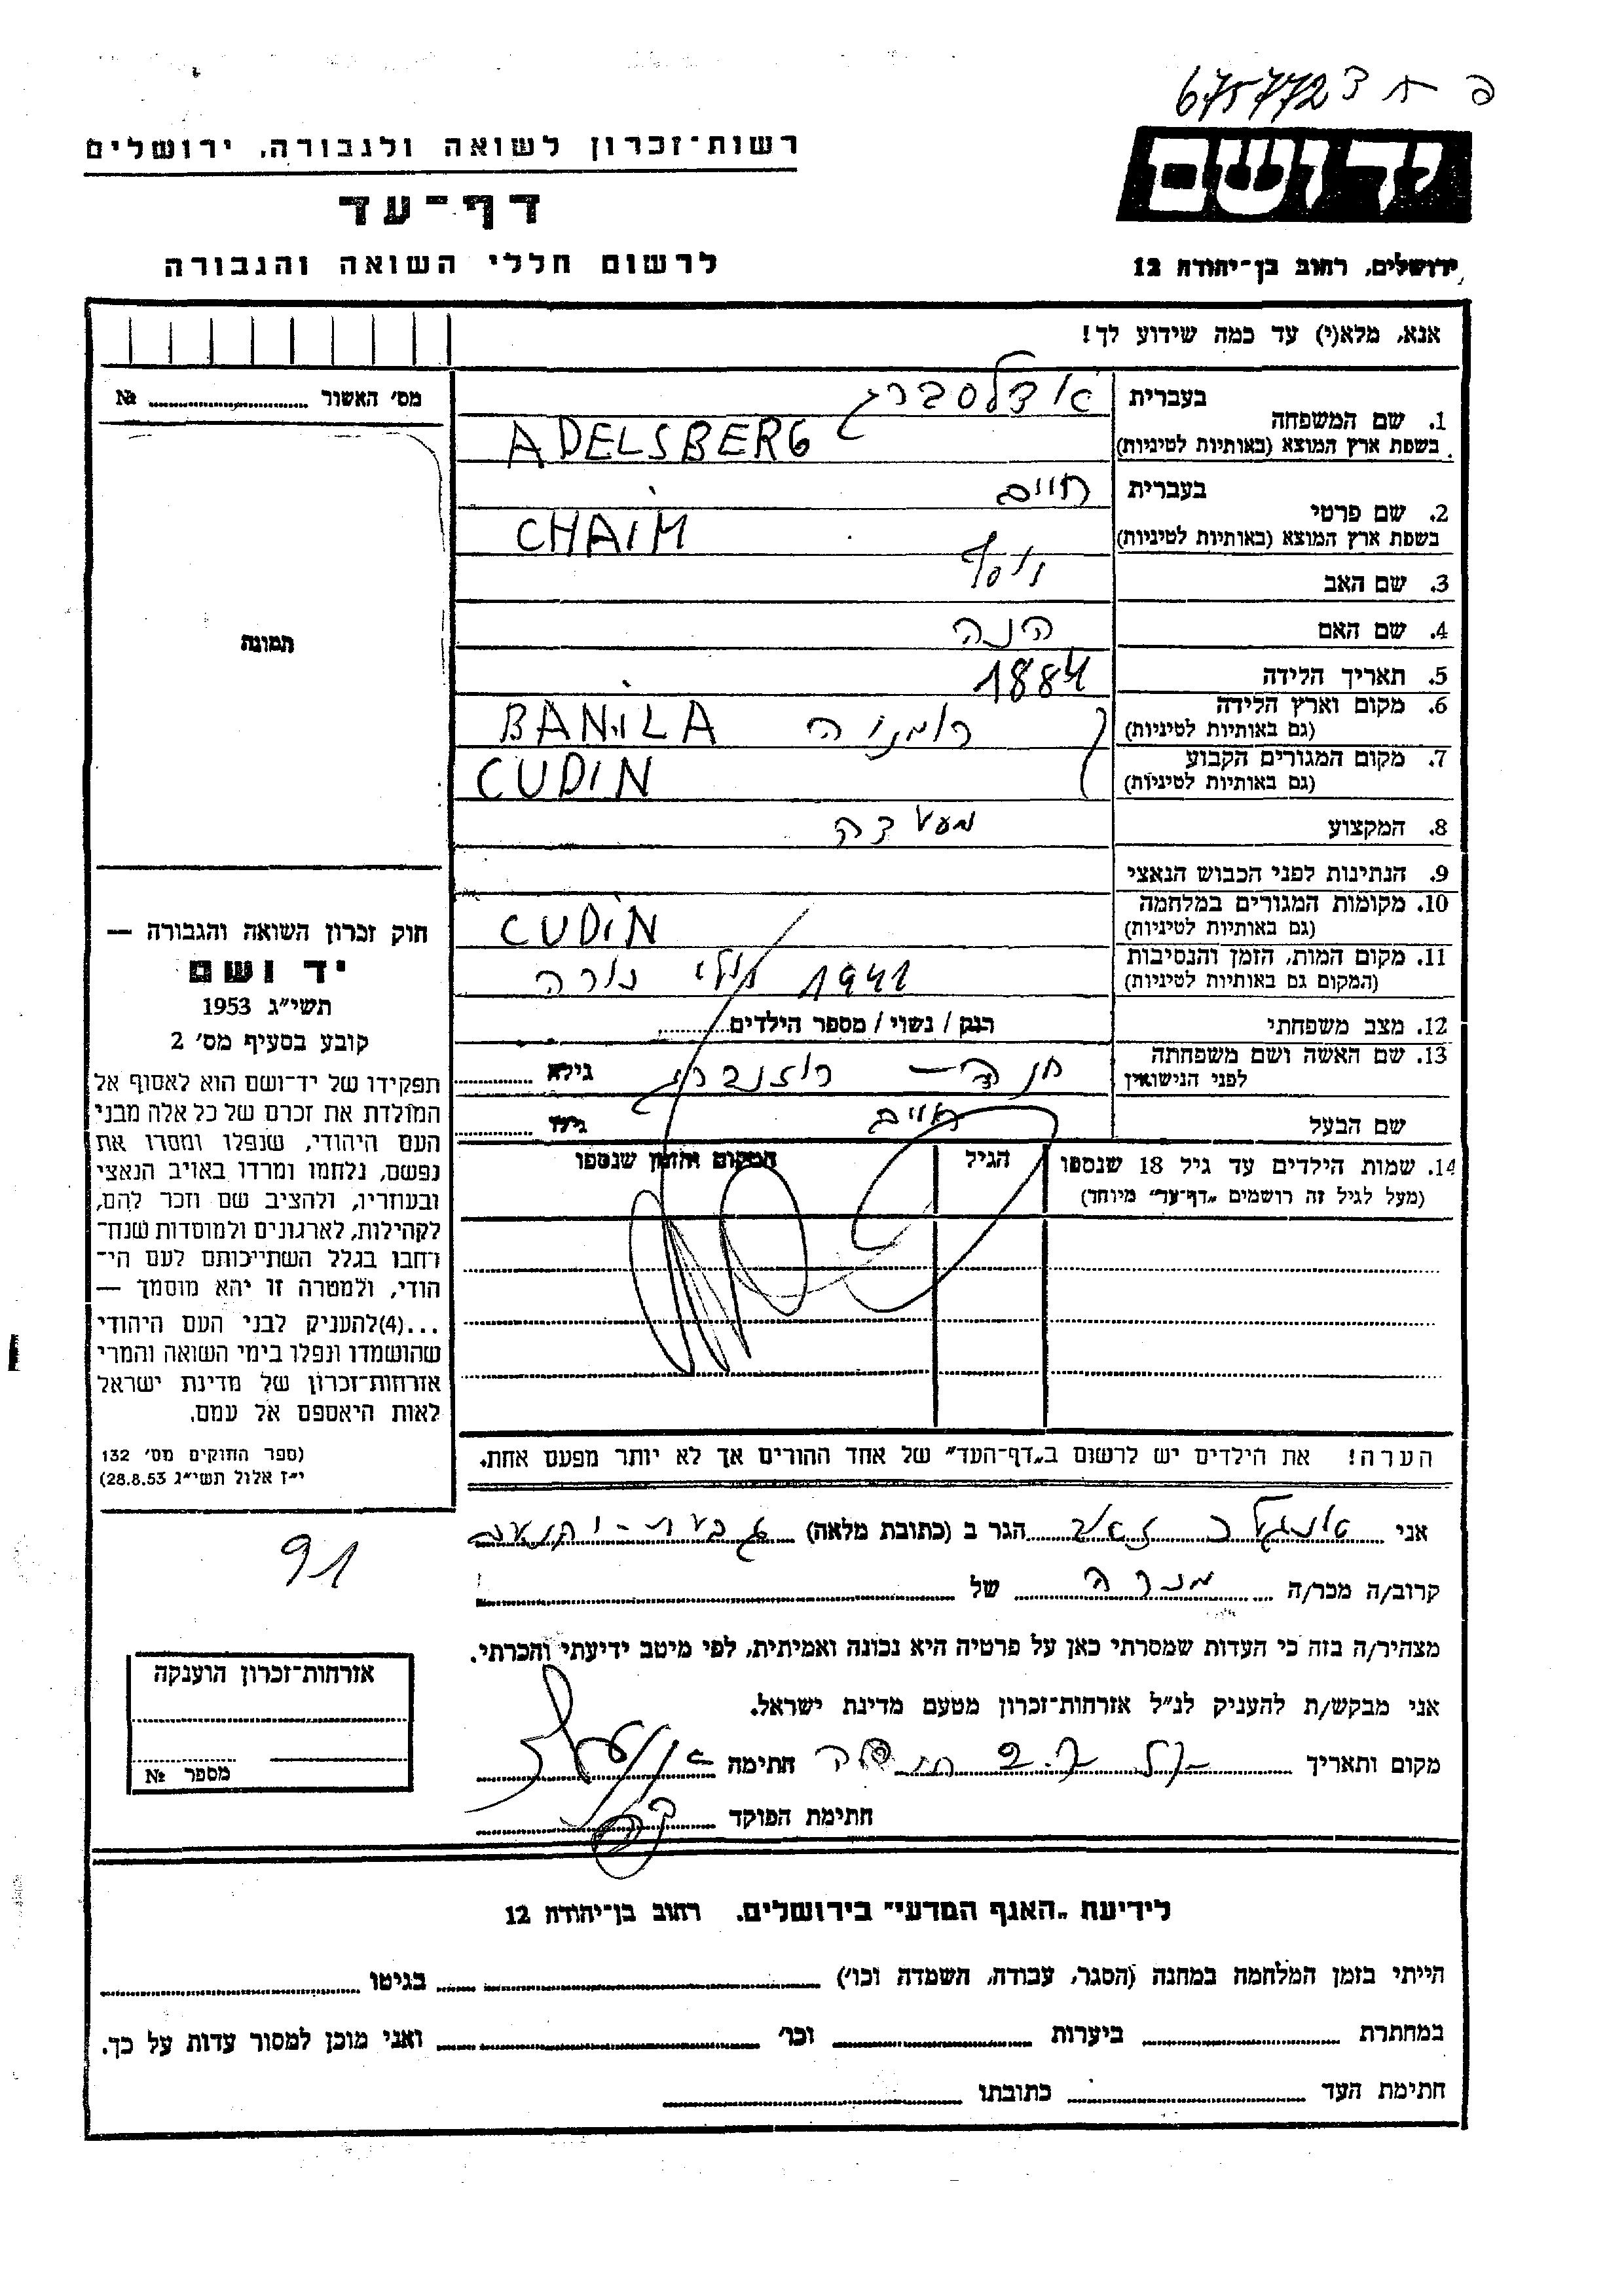 פ ח ד 675772
ידושם
רשות-זכרון לשואה ולגבורה, ירושלים
דף-עד
לרשום חללי השואה והגבורה
ירושלים, רחוב בן-יהודה 12
אנא, מלא(י) עד כמה שידוע לך!
מס' האשור № 
1. שם המשפחה בעברית אדלסברג
בשפת ארץ המוצא (באותיות לטיניות) ADELSBERG
2. שם פרטי בעברית חיים
בשפת ארץ המוצא (באותיות לטיניות) CHAIM
3. שם האב יוסף
4. שם האם חנה
5. תאריך הלידה 1884
6. מקום וארץ הלידה (גם באותיות לטיניות) רומניה BANILA
7. מקום המגורים הקבוע (גם באותיות לטיניות) CUDIN
8. המקצוע מסעדה
9. הנתינות לפני הכבוש הנאצי
10. מקומות המגורים במלחמה (גם באותיות לטיניות) CUDIN
11. מקום המות, הזמן והנסיבות (המקום גם באותיות לטיניות) 1941 יולי נורה
12. מצב משפחתי רווק / נשוי / מספר הילדים
13. שם האשה ושם משפחתה לפני הנישואין חנה - רוזנברג גילה
שם הבעל חיים גילו
14. שמות הילדים עד גיל 18 שנספו הגיל המקום והזמן שנספו
(מעל לגיל זה רושמים „דף-עד” מיוחד)
הערה! את הילדים יש לרשום ב„דף-העד” של אחד ההורים אך לא יותר מפעם אחת.
תמונה
חוק זכרון השואה והגבורה —
יד ושם
תשי״ג 1953
קובע בסעיף מס' 2
תפקידו של יד-ושם הוא לאסוף אל
המולדת את זכרם של כל אלה מבני
העם היהודי, שנפלו ומסרו את
נפשם, נלחמו ומרדו באויב הנאצי
ובעוזריו, ולהציב שם וזכר להם,
לקהילות, לארגונים ולמוסדות שנח-
רחבו בגלל השתייכותם לעם הי-
הודי, ולמטרה זו יהא מוסמך —
...(4)להעניק לבני העם היהודי
שהושמדו ונפלו בימי השואה והמרי
אזרחות-זכרון של מדינת ישראל
לאות היאספם אל עמם.
(ספר החוקים מס' 132
י״ז אלול תשי״ג 28.8.53)
אני זאב הגר ב (כתובת מלאה)
91
קרוב/ה מכר/ה מכרה של
מצהיר/ה בזה כי העדות שמסרתי כאן על פרטיה היא נכונה ואמיתית, לפי מיטב ידיעתי והכרתי.
אני מבקש/ת להעניק לנ״ל אזרחות-זכרון מטעם מדינת ישראל.
מקום ותאריך חתימה
חתימת הפוקד
אזרחות-זכרון הוענקה
מספר №
לידיעת „האגף המדעי” בירושלים, רחוב בן-יהודה 12
הייתי בזמן המלחמה במחנה (הסגר, עבודה, השמדה וכו') בגיטו
במחתרת ביערות וכו' ואני מוכן למסור עדות על כך.
חתימת העד כתובתו